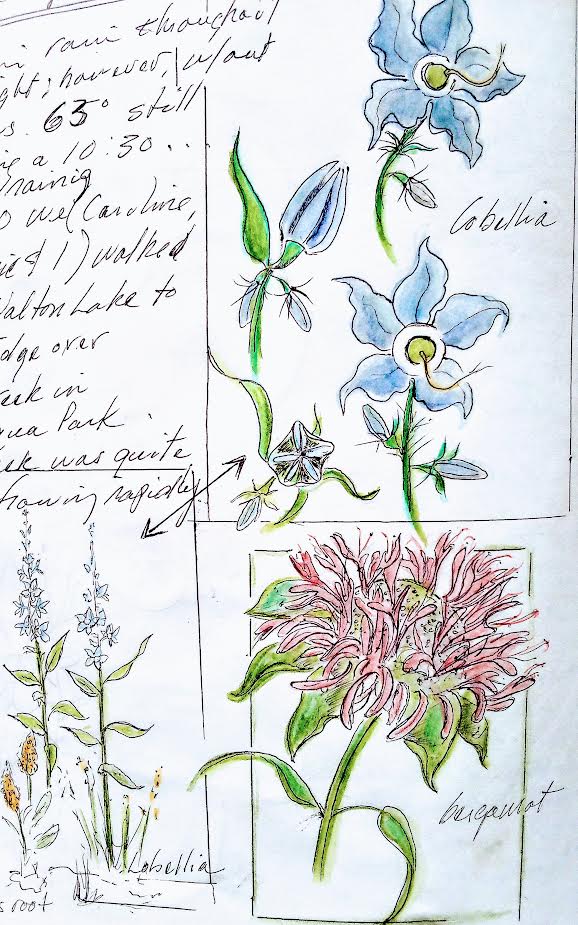 rain throughout
ght; however, w/out
s. 65° still
g a 10:30 ..
raining
we (Caroline,
& I) walked
Walton Lake to
dge over
eek in
ua Park.
ek was quite
flowing rapidly
Lobellia
bergamot
Lobellia
s root